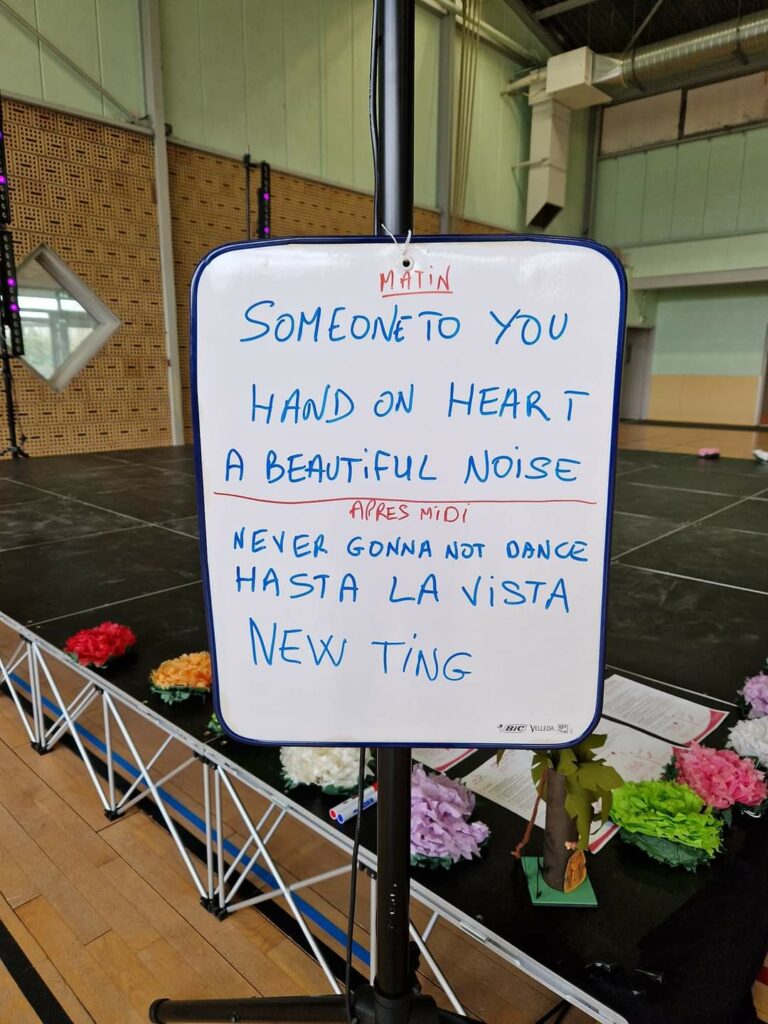 MATIN
SOMEONE TO YOU
HAND ON HEART
A BEAUTIFUL NOISE
APRES MIDI
NEVER GONNA NOT DANCE
HASTA LA VISTA
NEW TING
BIC VELLEDA